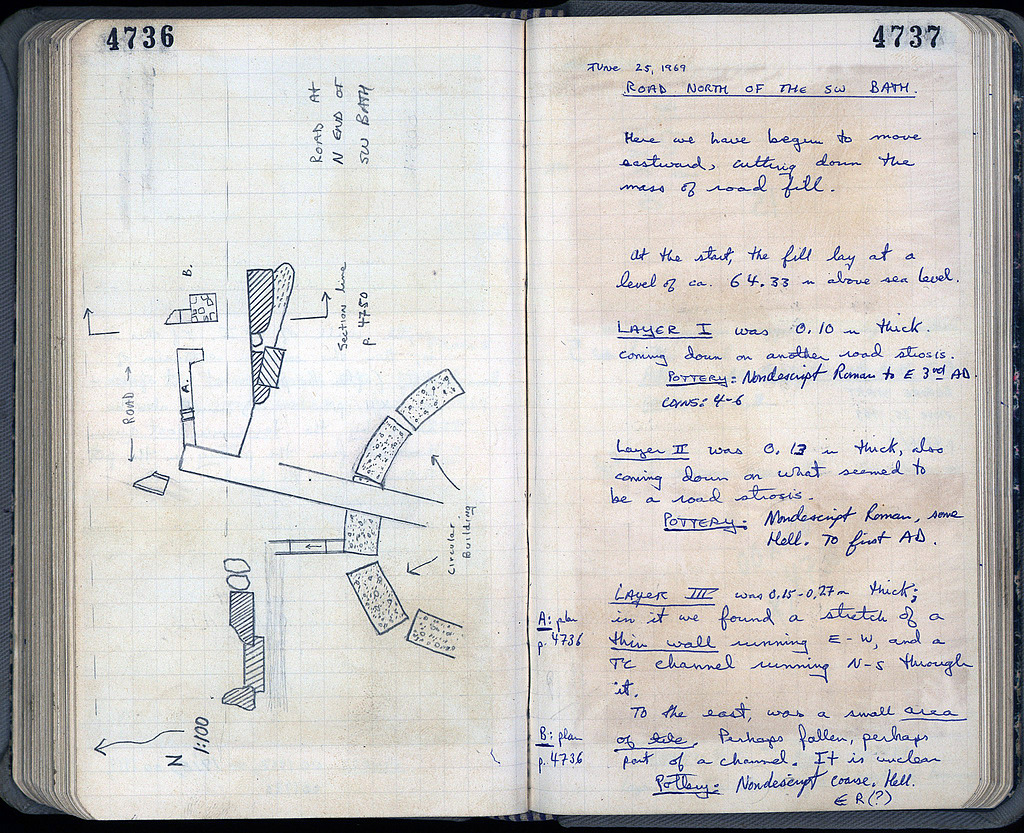 4736
ROAD At
N END OF
SW BATH
B.
Section line
p. 4750
A.
← ROAD →
Circular
Building
N
1:100
4737
JUNE 25, 1969
ROAD NORTH OF THE SW BATH.
Here we have begun to move
eastward, cutting down the
mass of road fill.
At the start, the fill lay at a
level of ca. 64.33 m above sea level.
LAYER I was 0.10 m thick.
coming down on another road strosis.
POTTERY: Nondescript Roman to E 3rd AD.
COINS: 4-6
Layer II was 0.13 m thick, also
coming down on what seemed to
be a road strosis.
POTTERY: Nondescript Roman, some
Hell. To first AD.
LAYER III was 0.15-0.27m thick;
A: plan
p. 4736
in it we found a stretch of a
thin wall running E-W, and a
TC channel running N-S through
it.
To the east, was a small area
B: plan
p. 4736
of tile. Perhaps fallen, perhaps
part of a channel. It is unclear
Pottery: Nondescript coarse, Hell.
E R (?)